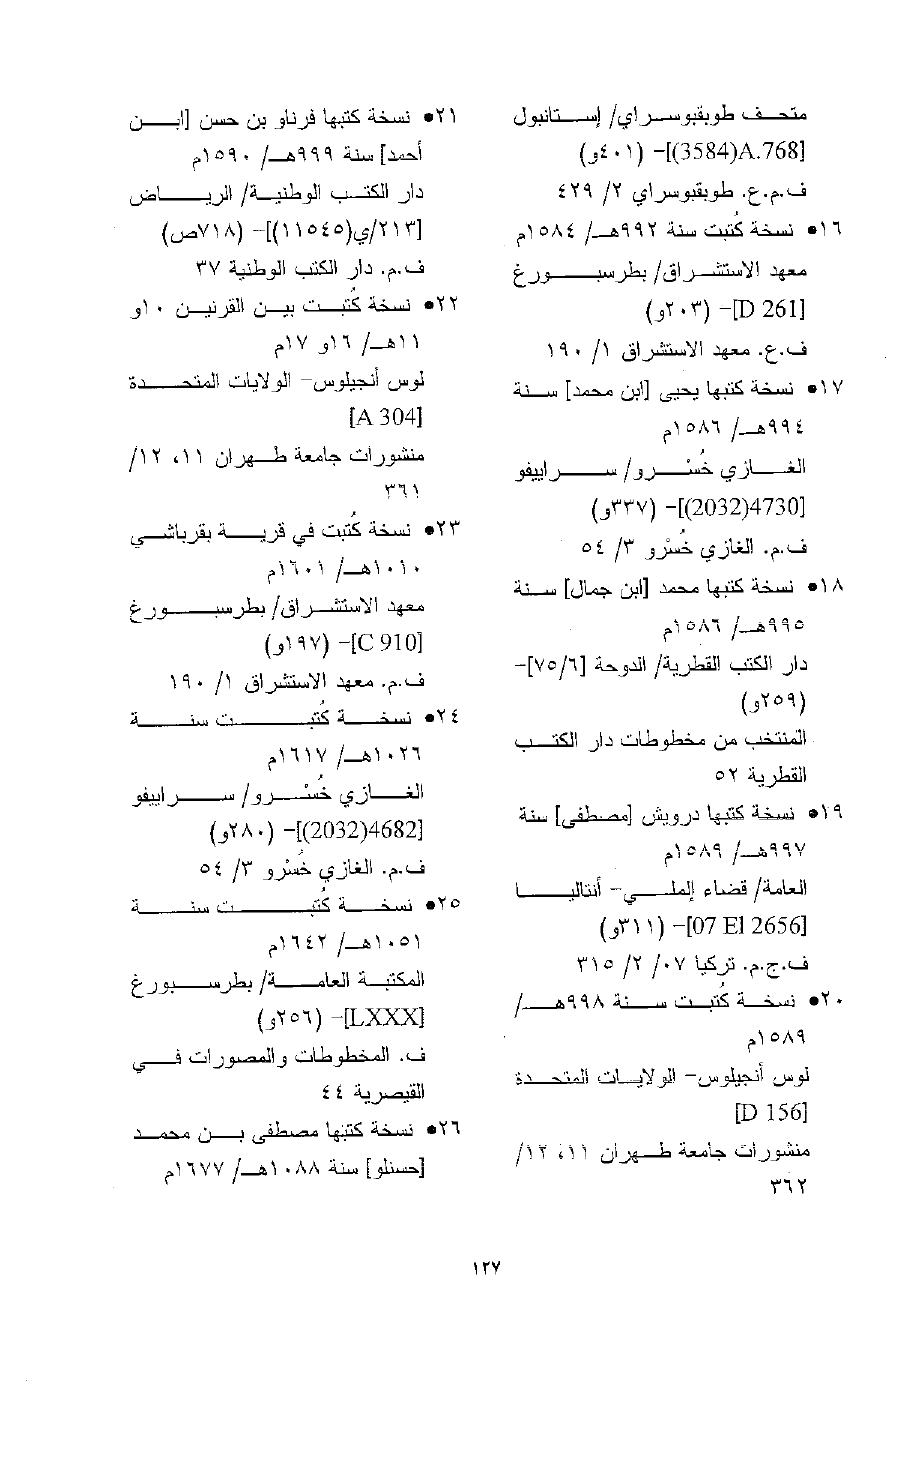 متحف طوبقبوسراي/ إستانبول
[A.768(3584)]- (٤٠١و)
ف.م.ع. طوبقبوسراي ٢/ ٤٢٩
١٦• نسخة كُتبت سنة ٩٩٢هـ/ ١٥٨٤م
معهد الاستشراق/ بطرسبورغ
[D 261]- (٢٠٣و)
ف.ع. معهد الاستشراق ١/ ١٩٠
١٧• نسخة كتبها يحيى [ابن محمد] سنة
٩٩٤هـ/ ١٥٨٦م
الغازي خُسْرو/ سراييفو
[4730(2032)]- (٣٣٧و)
ف.م. الغازي خُسْرو ٣/ ٥٤
١٨• نسخة كتبها محمد [ابن جمال] سنة
٩٩٥هـ/ ١٥٨٦م
دار الكتب القطرية/ الدوحة [٧٥/٦]-
(٢٥٩و)
المنتخب من مخطوطات دار الكتب
القطرية ٥٢
١٩• نسخة كتبها درويش [مصطفى] سنة
٩٩٧هـ/ ١٥٨٩م
العامة/ قضاء إلملي- أنتاليا
[07 El 2656]- (٣١١و)
ف.ج.م. تركيا ٠٧/ ٢/ ٣١٥
٢٠• نسخة كُتبت سنة ٩٩٨هـ/
١٥٨٩م
لوس أنجيلوس- الولايات المتحدة
[D 156]
منشورات جامعة طهران ١١، ١٢/
٣٦٢
٢١• نسخة كتبها فرناو بن حسن [ابن
أحمد] سنة ٩٩٩هـ/ ١٥٩٠م
دار الكتب الوطنية/ الرياض
[٢١٣/ي(١١٥٤٥)]- (٧١٨ص)
ف.م. دار الكتب الوطنية ٣٧
٢٢• نسخة كُتبت بين القرنين ١٠و
١١هـ/ ١٦و ١٧م
لوس أنجيلوس- الولايات المتحدة
[A 304]
منشورات جامعة طهران ١١، ١٢/
٣٦١
٢٣• نسخة كُتبت في قرية بقرباشي
١٠١٠هـ/ ١٦٠١م
معهد الاستشراق/ بطرسبورغ
[C 910]- (١٩٧و)
ف.م. معهد الاستشراق ١/ ١٩٠
٢٤• نسخة كُتبت سنة
١٠٢٦هـ/ ١٦١٧م
الغازي خُسْرو/ سراييفو
[4682(2032)]- (٢٨٠و)
ف.م. الغازي خُسْرو ٣/ ٥٤
٢٥• نسخة كُتبت سنة
١٠٥١هـ/ ١٦٤٢م
المكتبة العامة/ بطرسبورغ
[LXXX]- (٢٥٦و)
ف. المخطوطات والمصورات في
القيصرية ٤٤
٢٦• نسخة كتبها مصطفى بن محمد
[حسنلو] سنة ١٠٨٨هـ/ ١٦٧٧م
١٢٧